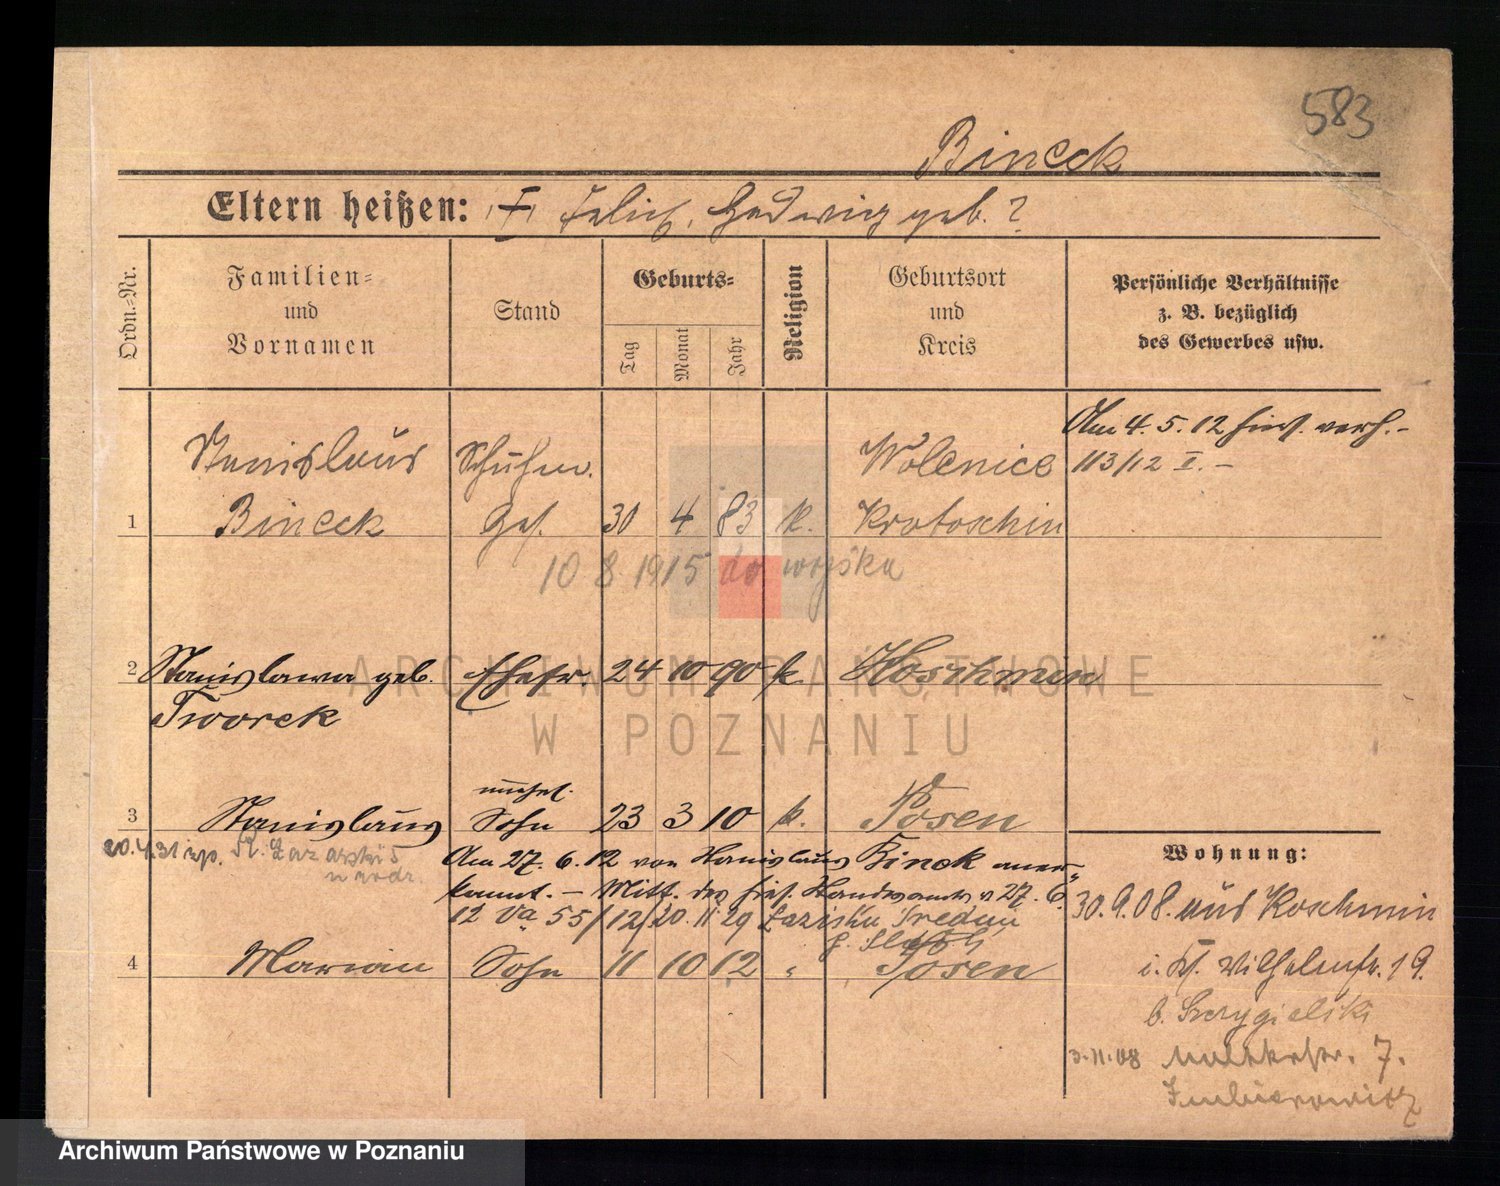 583
Bineck
Eltern heißen: Felix, Hedwig geb. ?
Ordn.-Nr.
Familien-
und
Vornamen
Stand
Geburts-
Tag
Monat
Jahr
Religion
Geburtsort
und
Kreis
Persönliche Verhältnisse
z. B. bezüglich
des Gewerbes usw.
Am 4. 5. 12 hies. verh. -
113/12 I. -
Stanislaus Schuhm. Wolenice
1 Bineck Ges. 30 4 83 k. Krotoschin
10 8 1915 do wojska
2 Stanislawa geb. Ehefr. 24 10 90 k. Koschmin
Tworek
unehel.
3 Stanislaus Sohn 23 3 10 k. Posen
20.4.31
Am 27. 6. 12 von Stanislaus Binek aner-
kannt. - Mitt. des hies. Standesamts v 27. 6.
12 Va 55/12/20. 11 29
4 Marian Sohn 11 10 12 " Posen
Wohnung:
30.9.08. aus Koschmin
Wilhelmstr. 19.
b. Szczygielski
3.11.08 7.
ARCHIWUM PAŃSTWOWE
W POZNANIU
Archiwum Państwowe w Poznaniu